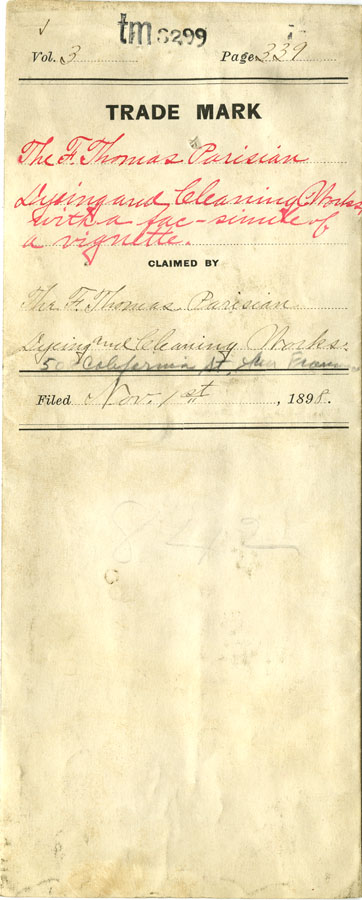 ✓
tm 3299
Vol. 3 Page 339
TRADE MARK
The F. Thomas Parisian
Dyeing and Cleaning Works
with a fac-simile of
a vignette.
CLAIMED BY
The F. Thomas Parisian
Dyeing and Cleaning Works.
California St. San
Filed Nov. 1st, 1898.
842